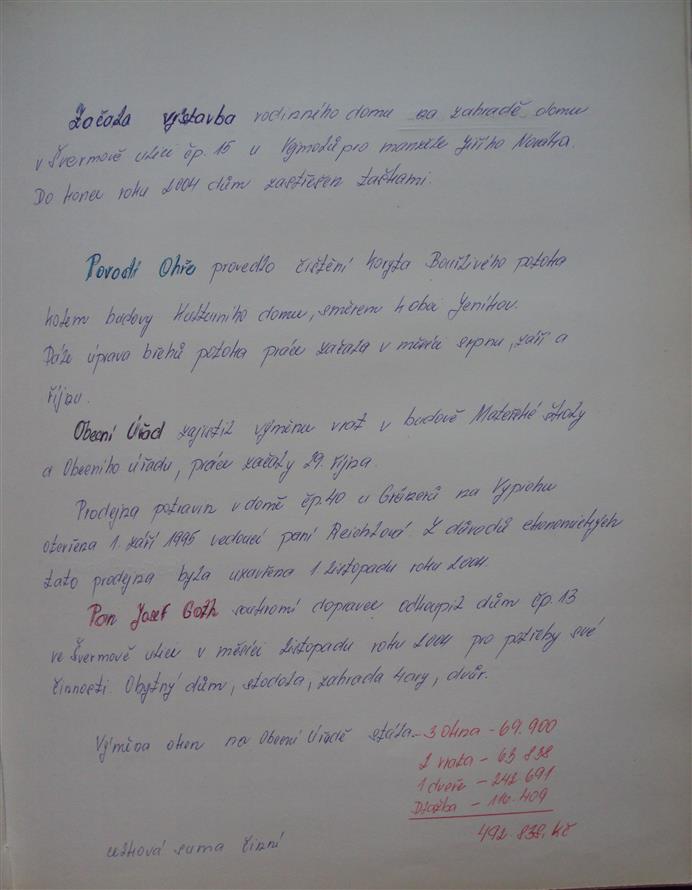 Začala výstavba rodinného domu na zahradě domu
v Švermově ulici čp. 15 u Vymolů pro manžele Jiřího Nováka.
Do konce roku 2004 dům zastřešen taškami.
Povodí Ohře provedlo čištění koryta Bouřlivého potoka
kolem budovy Kulturního domu, směrem k obci Jeníkov.
Dále úprava břehů potoka práce začala v měsíci srpnu, září a
říjnu.
Obecní Úřad zajistil výměnu vrat v budově Mateřské školy
a Obecního úřadu, práce začaly 29. října.
Prodejna potravin v domě čp. 40 u na Výprohu
otevřena 1. září 1995 vedoucí paní Reichlová. Z důvodů ekonomických
tato prodejna byla uzavřena 1 listopadu roku 2004.
Pan Josef Goth soukromí dopravce odkoupil dům čp. 13
ve Švermově ulici v měsíci listopadu roku 2004 pro potřeby své
činnosti. Obytný dům, stodola, zahrada, dvůr.
Výměna oken na Obecní Úřadě stála - 3 okna - 69.900
2 vrata - 63 838
1 dveře - 242.691
Dlažba - 116.409
492.838, Kč
celková suma činní